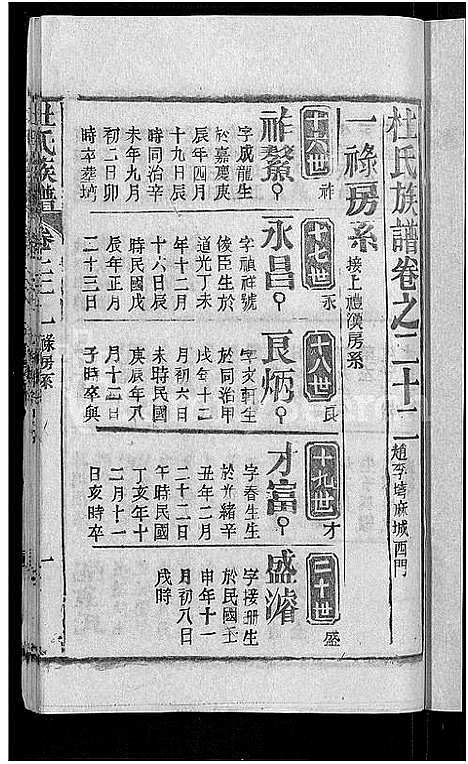 杜氏族譜卷之二十二
趙李塆麻城西門
一祿房系
接上禮漢房系
十六世 祚
祚鰲
字成龍生
於嘉慶庚
辰年四月
十九日辰
時同治辛
未年九月
初二日卯
時卒葬塆
十七世 永
永昌
字禎祥號
俊臣生於
道光丁未
年十二月
十六日辰
時民國戊
辰年正月
二十三日
十八世 良
良炳
字文軒生
於同治甲
戌年十二
月初六日
未時民國
庚辰年八
月十二日
子時卒與
十九世 才
才富
字春生生
於光緒辛
丑年二月
二十二日
午時民國
丁亥年十
二月十一
日亥時卒
二十世 盛
盛濬
字接册生
於民國壬
申年十一
月初八日
戌時
杜氏族譜
卷之二二
一祿房系
一